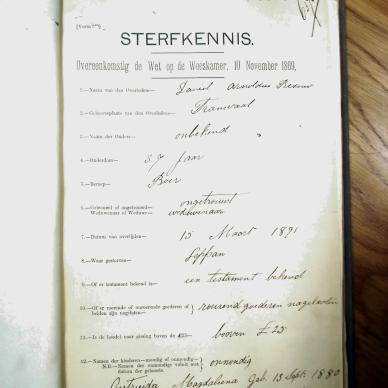 STERFKENNIS.
Overeenkomstig de Wet op de Weeskamer, 10 November 1869,
1.—Naam van den Overledene— Daniel Arnoldus
2.—Geboorteplaats van den Overledene— Transvaal
3.—Naam der Ouders— onbekend
4.—Ouderdom— 37 jaar
5.—Beroep— Boer
6.—Getrouwd of ongetrouwd— ongetrouwt
Weduwenaar of Weduwe— weduwenaar
7.—Datum van overlijden— 15 Maart 1891
8.—Waar gestorven—
9.—Of er testament bekend is— een testament bekend
10.—Of er roerende of onroerende goederen of
zijn nagelaten— roerende goederen nagelaten
11.—Is de boedel naar gissing boven de £25— booven £25
12.—Namen der kinderen—mondig of onmondig— onmondig
N.B.—Namen der onmondige voluit met
datum der geboorte.
Magdalena Geb. 15 Sept. 1880